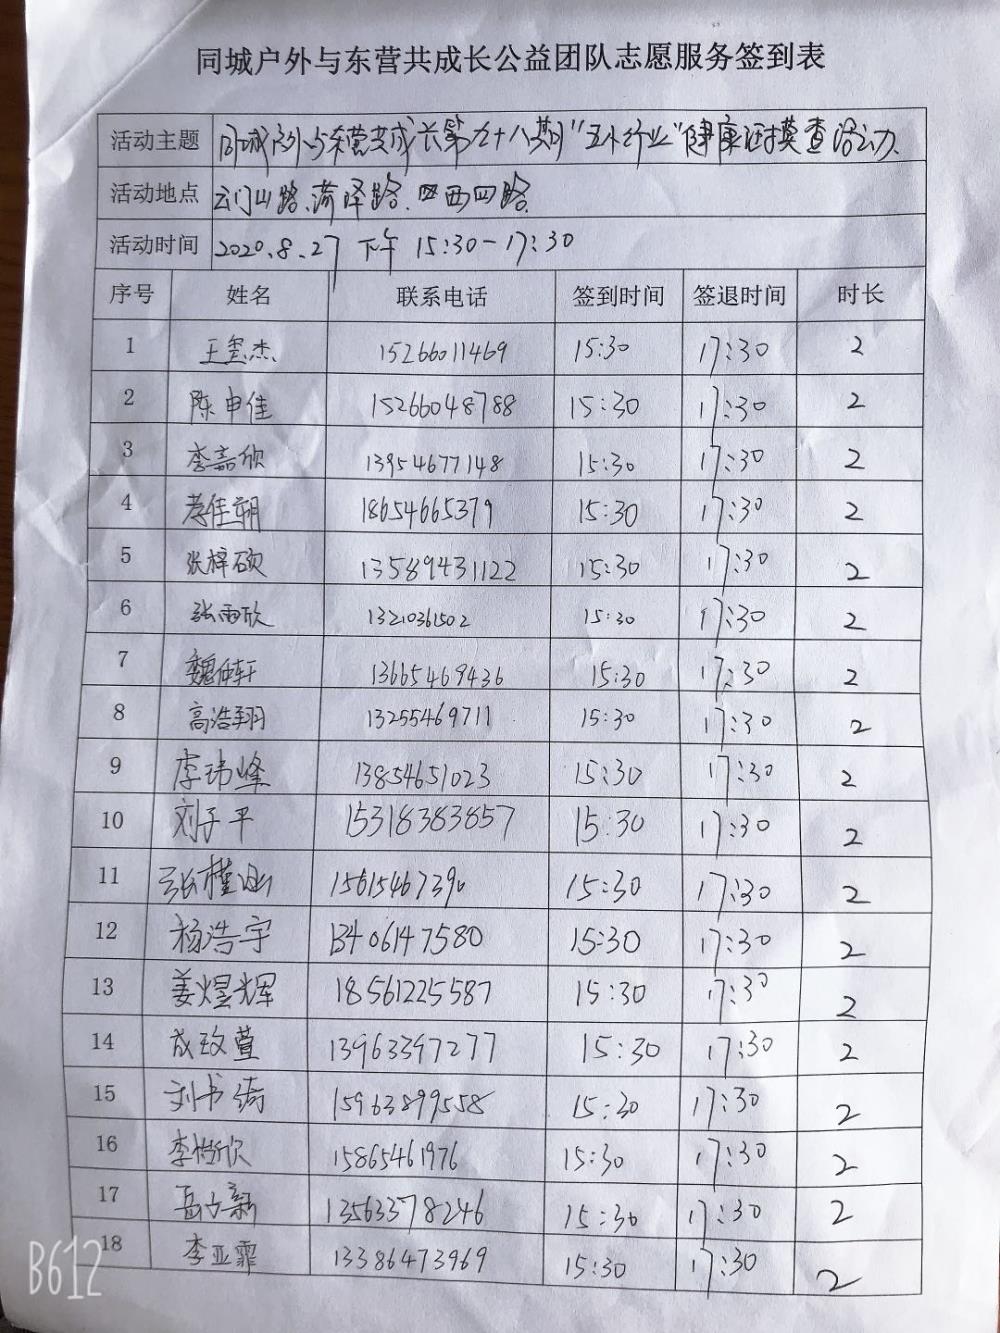 同城户外与东营共成长公益团队志愿服务签到表
活动主题 同城户外与东营共成长第九十八期"五小行业"健康证摸查活动
活动地点 云门山路、菏泽路、西四路
活动时间 2020.8.27 下午 15:30-17:30
序号 姓名 联系电话 签到时间 签退时间 时长
1 王玺杰 15266011469 15:30 17:30 2
2 陈申佳 15266048788 15:30 17:30 2
3 李嘉欣 13954677148 15:30 17:30 2
4 佳朔 18654665379 15:30 17:30 2
5 张梓硕 13589431122 15:30 17:30 2
6 张雨欣 13210361502 15:30 17:30 2
7 魏仲轩 13665469436 15:30 17:30 2
8 高浩翔 13255469711 15:30 17:30 2
9 李玮峰 13854651023 15:30 17:30 2
10 刘子平 15318383857 15:30 17:30 2
11 张槿 15615467390 15:30 17:30 2
12 杨浩宇 13406147580 15:30 17:30 2
13 姜煜辉 18561225587 15:30 17:30 2
14 成玫萱 13963397277 15:30 17:30 2
15 刘书绮 15963899558 15:30 17:30 2
16 李欣 15865461976 15:30 17:30 2
17 岳占新 13563378246 15:30 17:30 2
18 李亚霏 13386473969 15:30 17:30 2
B612